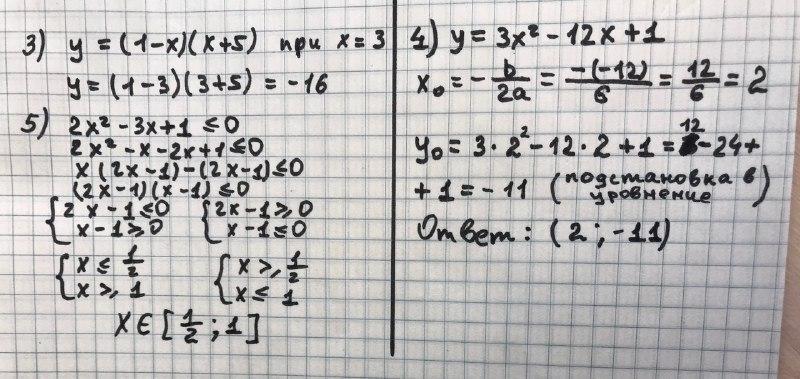 3) y = (1-x)(x+5) при x = 3
y = (1-3)(3+5) = -16
5) 2x² - 3x + 1 ≤ 0
2x² - x - 2x + 1 ≤ 0
x(2x-1) - (2x-1) ≤ 0
(2x-1)(x-1) ≤ 0
{2x-1 ≤ 0 {2x-1 ≥ 0
{x-1 ≥ 0 {x-1 ≤ 0
{x ≤ 1/2 {x ≥ 1/2
{x ≥ 1 {x ≤ 1
X ∈ [1/2 ; 1]
4) y = 3x² - 12x + 1
x₀ = - b/2a = -(-12)/6 = 12/6 = 2
y₀ = 3 · 2² - 12 · 2 + 1 = 12 - 24 +
+ 1 = -11 (подстановка в уровнение)
Ответ: (2 ; -11)